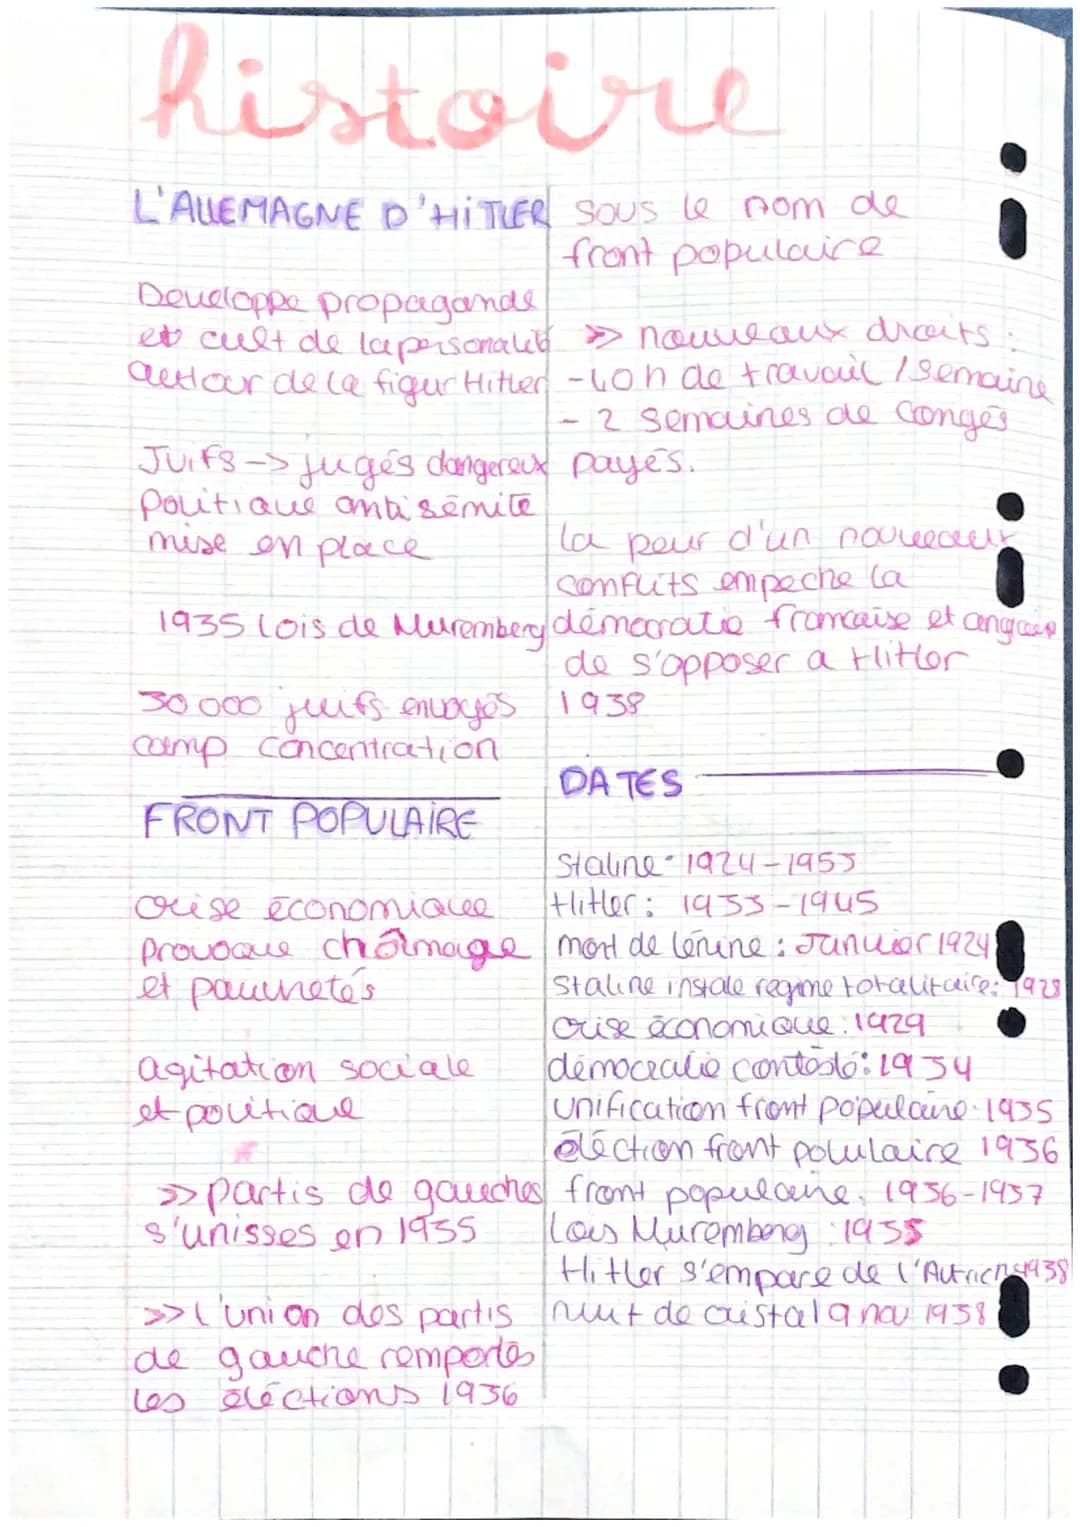 histoire
L'ALLEMAGNE D'HiTLER
Developpe propagande
et cult de la personalité
autour de la figur Hitler
Juifs -> jugés dangereux
Politique antisémite
mise en place
1935 lois de Nuremberg
30 000 juifs envoyés
camp concentration
FRONT POPULAIRE
crise économique
provoque chômage
et pauvretés
agitation sociale
et politique
>> partis de gauches
s'unisses en 1935
>> l'union des partis
de gauche remportes
les éléctions 1936
sous le nom de
front populaire
>> nouveaux droits :
- 40 h de travail / semaine
- 2 semaines de congés
payés.
la peur d'un nouveaux
conflits empeche la
démocratie francaise et anglaise
de s'opposer a Hitler
1938
DATES
Staline : 1924-1953
Hitler : 1933-1945
mort de Lénine : Janvier 1924
Staline instale regime totalitaire : 1928
crise économique : 1929
démocratie contesté : 1934
unification front populaire : 1935
éléction front polulaire 1936
front populaire : 1936-1937
Lois Nuremberg : 1935
Hitler s'empare de l'Autriche 1938
nuit de cristal 9 nov 1938